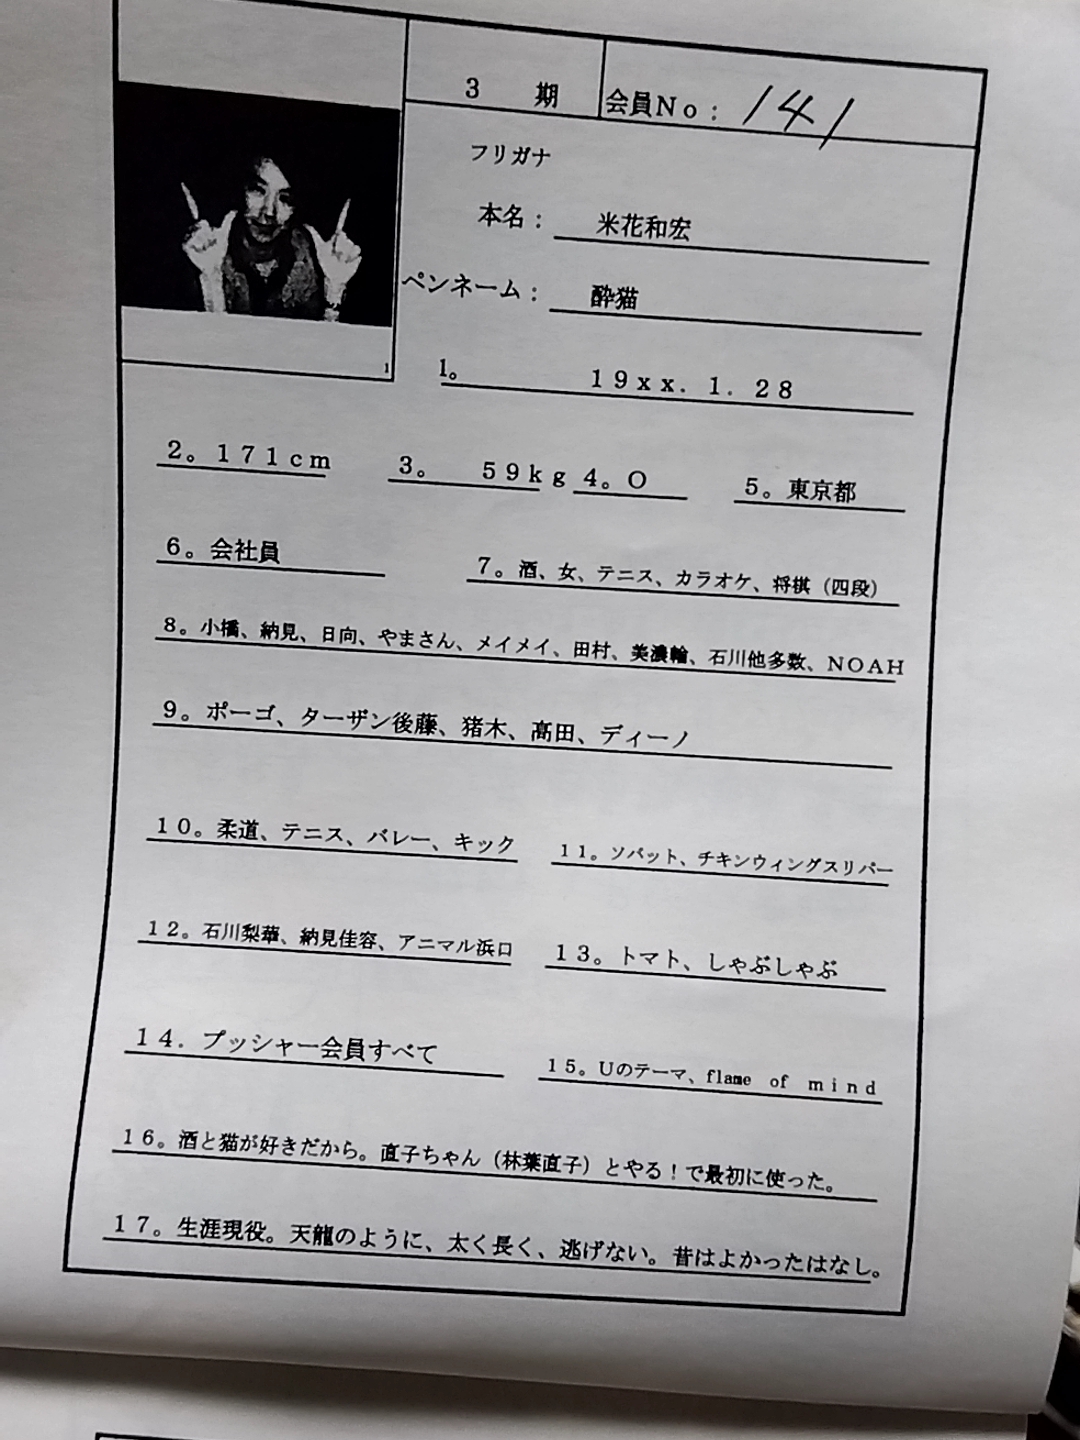 3 期 会員No：141
フリガナ
本名： 米花和宏
ペンネーム： 酔猫
1
1。 19xx．1．28
2。171cm 3。 59kg 4。O 5。東京都
6。会社員 7。酒、女、テニス、カラオケ、将棋（四段）
8。小橋、納見、日向、やまさん、メイメイ、田村、美濃輪、石川他多数、NOAH
9。ポーゴ、ターザン後藤、猪木、髙田、ディーノ
10。柔道、テニス、バレー、キック 11。ソバット、チキンウィングスリパー
12。石川梨華、納見佳容、アニマル浜口 13。トマト、しゃぶしゃぶ
14．プッシャー会員すべて 15。Uのテーマ、flame of mind
16。酒と猫が好きだから。直子ちゃん（林葉直子）とやる！で最初に使った。
17。生涯現役。天龍のように、太く長く、逃げない。昔はよかったはなし。